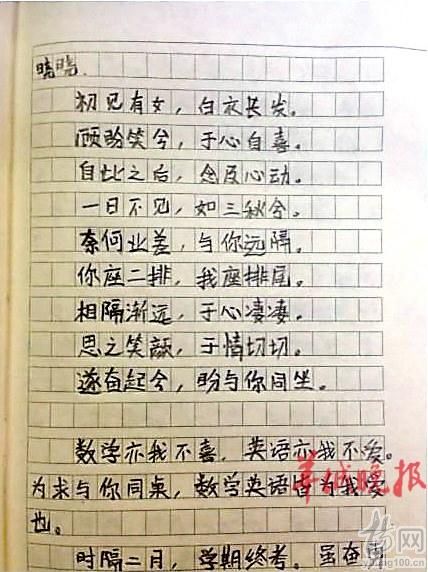 晓晓.
初见有女，白衣长发。
顾盼笑兮，于心自喜。
自此之后，念及心动。
一日不见，如三秋兮。
奈何业差，与你远隔。
你座二排，我座排尾。
相隔渐远，于心凄凄。
思之笑颜，于情切切。
遂奋起兮，盼与你同坐。
数学亦我不喜，英语亦我不爱。
为求与你同桌，数学英语皆为我爱
也。
时隔二月，学期终考。虽奋
羊城晚报
youjing100.cn